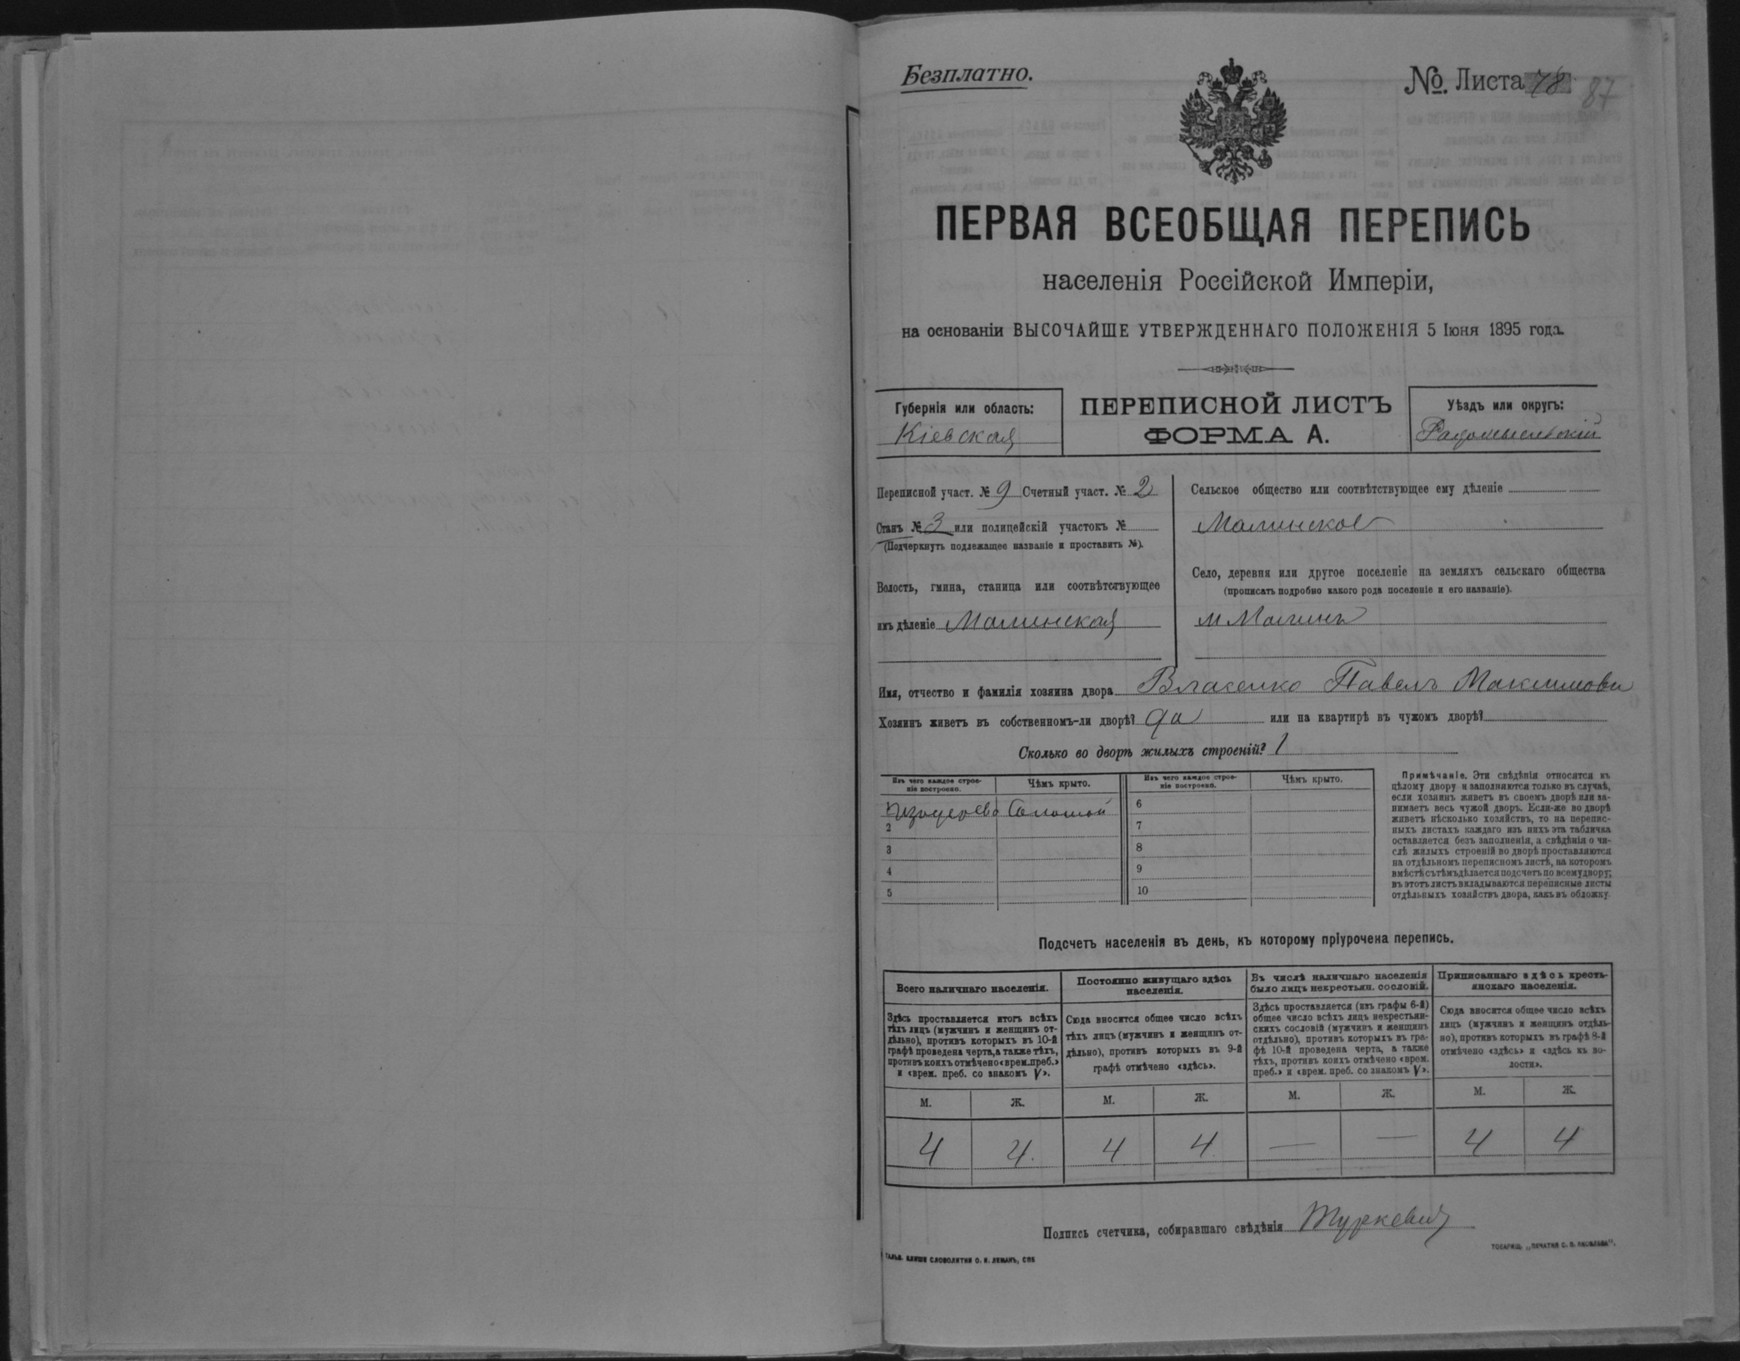 Безплатно.
№ Листа 78
87
ПЕРВАЯ ВСЕОБЩАЯ ПЕРЕПИСЬ
населенія Россійской Имперіи,
на основаніи ВЫСОЧАЙШЕ УТВЕРЖДЕННАГО ПОЛОЖЕНІЯ 5 Іюня 1895 года.
Губернія или область:
Кіевская
ПЕРЕПИСНОЙ ЛИСТЪ
ФОРМА А.
Уѣздъ или округъ:
Радомысльскій
Переписной участ. № 9 Счетный участ. № 2
Станъ № 3 или полицейскій участокъ №
(Подчеркнуть подлежащее названіе и проставить №).
Волость, гмина, станица или соотвѣтствующее
имъ дѣленіе Малинская
Сельское общество или соотвѣтствующее ему дѣленіе
Малинское
Село, деревня или другое поселеніе на земляхъ сельскаго общества
(прописать подробно какого рода поселеніе и его названіе).
м Малинъ
Имя, отчество и фамилія хозяина двора Власенко Павелъ Максимовъ
Хозяинъ живетъ въ собственномъ-ли дворѣ? да или на квартирѣ въ чужомъ дворѣ?
Сколько во дворѣ жилыхъ строеній? 1
Изъ чего каждое строе-
ніе построено.
Чѣмъ крыто.
Изъ чего каждое строе-
ніе построено.
Чѣмъ крыто.
Изъ дерева Соломой
2
3
4
5
6
7
8
9
10
Примѣчаніе. Эти свѣдѣнія относятся къ
цѣлому двору и заполняются только въ случаѣ,
если хозяинъ живетъ въ своемъ дворѣ или за-
нимаетъ весь чужой дворъ. Если-же во дворѣ
живетъ нѣсколько хозяйствъ, то на перепис-
ныхъ листахъ каждаго изъ нихъ эта табличка
оставляется безъ заполненія, а свѣдѣнія о чи-
слѣ жилыхъ строеній во дворѣ проставляются
на отдѣльномъ переписномъ листѣ, на которомъ
вмѣстѣ съ тѣмъ дѣлается подсчетъ по всему двору;
въ этотъ листъ вкладываются переписные листы
отдѣльныхъ хозяйствъ двора, какъ въ обложку.
Подсчетъ населенія въ день, къ которому пріурочена перепись.
Всего наличнаго населенія.
Здѣсь проставляется итогъ всѣхъ
тѣхъ лицъ (мужчинъ и женщинъ от-
дѣльно), противъ которыхъ въ 10-й
графѣ проведена черта, а также тѣхъ,
противъ коихъ отмѣчено «врем. преб.»
и «врем. преб. со знакомъ V».
Постоянно живущаго здѣсь
населенія.
Сюда вносится общее число всѣхъ
тѣхъ лицъ (мужчинъ и женщинъ от-
дѣльно), противъ которыхъ въ 9-й
графѣ отмѣчено «здѣсь».
Въ числѣ наличнаго населенія
было лицъ некрестьян. сословій.
Здѣсь проставляется (изъ графы 6-й)
общее число всѣхъ лицъ некрестьян-
скихъ сословій (мужчинъ и женщинъ
отдѣльно), противъ которыхъ въ гра-
фѣ 10-й проведена черта, а также
тѣхъ, противъ коихъ отмѣчено «врем.
преб.» и «врем. преб. со знакомъ V».
Приписаннаго здѣсь кресть-
янскаго населенія.
Сюда вносится общее число всѣхъ
лицъ (мужчинъ и женщинъ отдѣль-
но), противъ которыхъ въ графѣ 8-й
отмѣчено «здѣсь» и «здѣсь въ во-
лости».
М. Ж. М. Ж. М. Ж. М. Ж.
4 4. 4 4 — — 4 4
Подпись счетчика, собиравшаго свѣдѣнія Туркевичъ
ГАЛЬВ. КЛИШЕ СЛОВОЛИТНИ О. И. ЛЕМАНЪ, СПБ
ТОВАРИЩ. „ПЕЧАТНЯ С. П. ЯКОВЛЕВА".